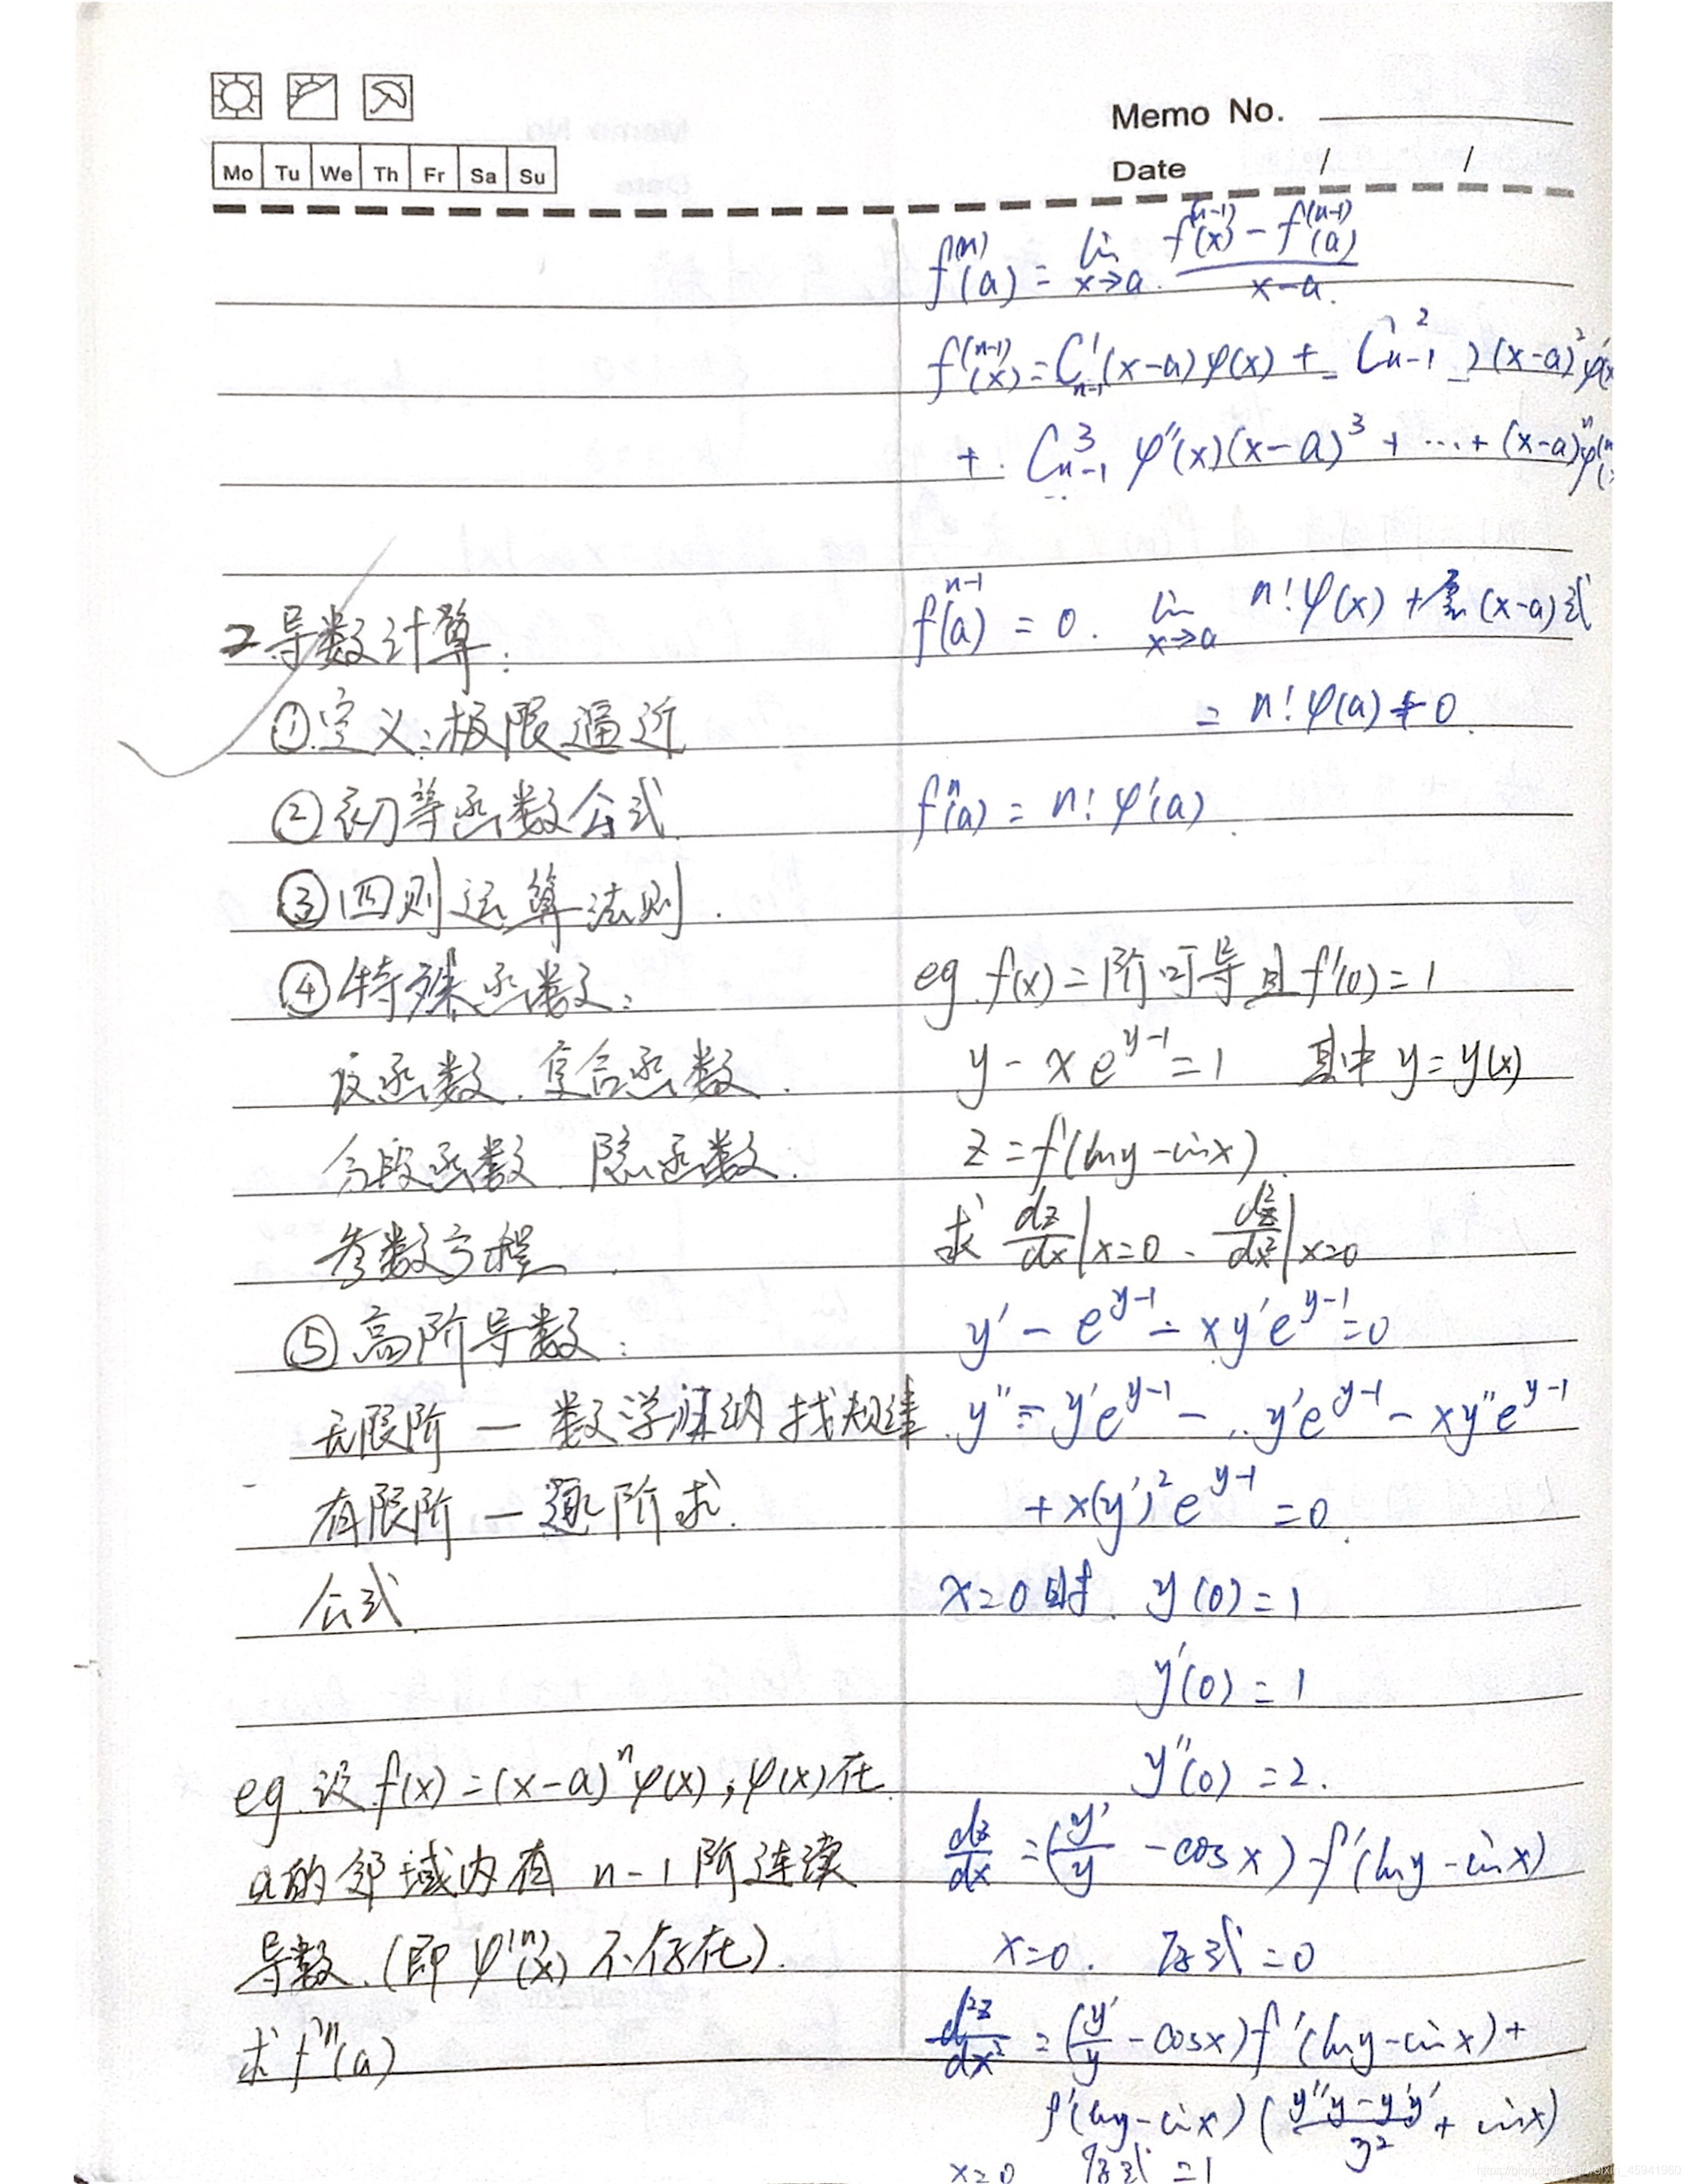 Memo No.
Mo Tu We Th Fr Sa Su
Date / /
2 导数计算:
①定义:极限逼近
②初等函数公式.
③四则运算法则.
④特殊函数:
反函数.复合函数.
分段函数.隐函数.
参数方程.
⑤高阶导数:
无限阶—数学归纳找规律.
有限阶—逐阶求.
公式.
eg.设f(x)=(x-a)ⁿφ(x),φ(x)在
a的邻域内有 n-1阶连续
导数.(即φ⁽ⁿ⁾(x)不存在).
求fⁿ(a)
f⁽ⁿ⁾(a) = lim x→a (f⁽ⁿ⁻¹⁾(x) - f⁽ⁿ⁻¹⁾(a))/(x-a).
f⁽ⁿ⁻¹⁾(x) = C¹ₙ₋₁(x-a)φ(x) + C²ₙ₋₁ (x-a)²φ'(x
+. C³ₙ₋₁ φ''(x)(x-a)³ + ... + (x-a)ⁿφ⁽ⁿ
fⁿ⁻¹(a) = 0. lim x→a n!φ(x) + (x-a)式
= n!φ(a) ≠ 0.
fⁿ(a) = n! φ'(a).
eg.f(x)=阶可导且f'(0)=1
y - xe^(y-1) = 1 其中 y=y(x)
z = f(lny-sinx).
求 dz/dx|x=0、d²z/dx²|x=0
y' - e^(y-1) - xy'e^(y-1) = 0
y'' - y'e^(y-1) - y'e^(y-1) - xy''e^(y-1)
+ x(y')²e^(y-1) = 0.
x=0时. y(0)=1
y'(0)=1
y''(0)=2.
dz/dx = (y'/y - cosx)f'(lny-sinx)
x=0. 原式=0
d²z/dx² = (y'/y - cosx)f'(lny-sinx)+
f'(lny-sinx)((y''y-y'y')/y² + sinx)
x=0 原式=1